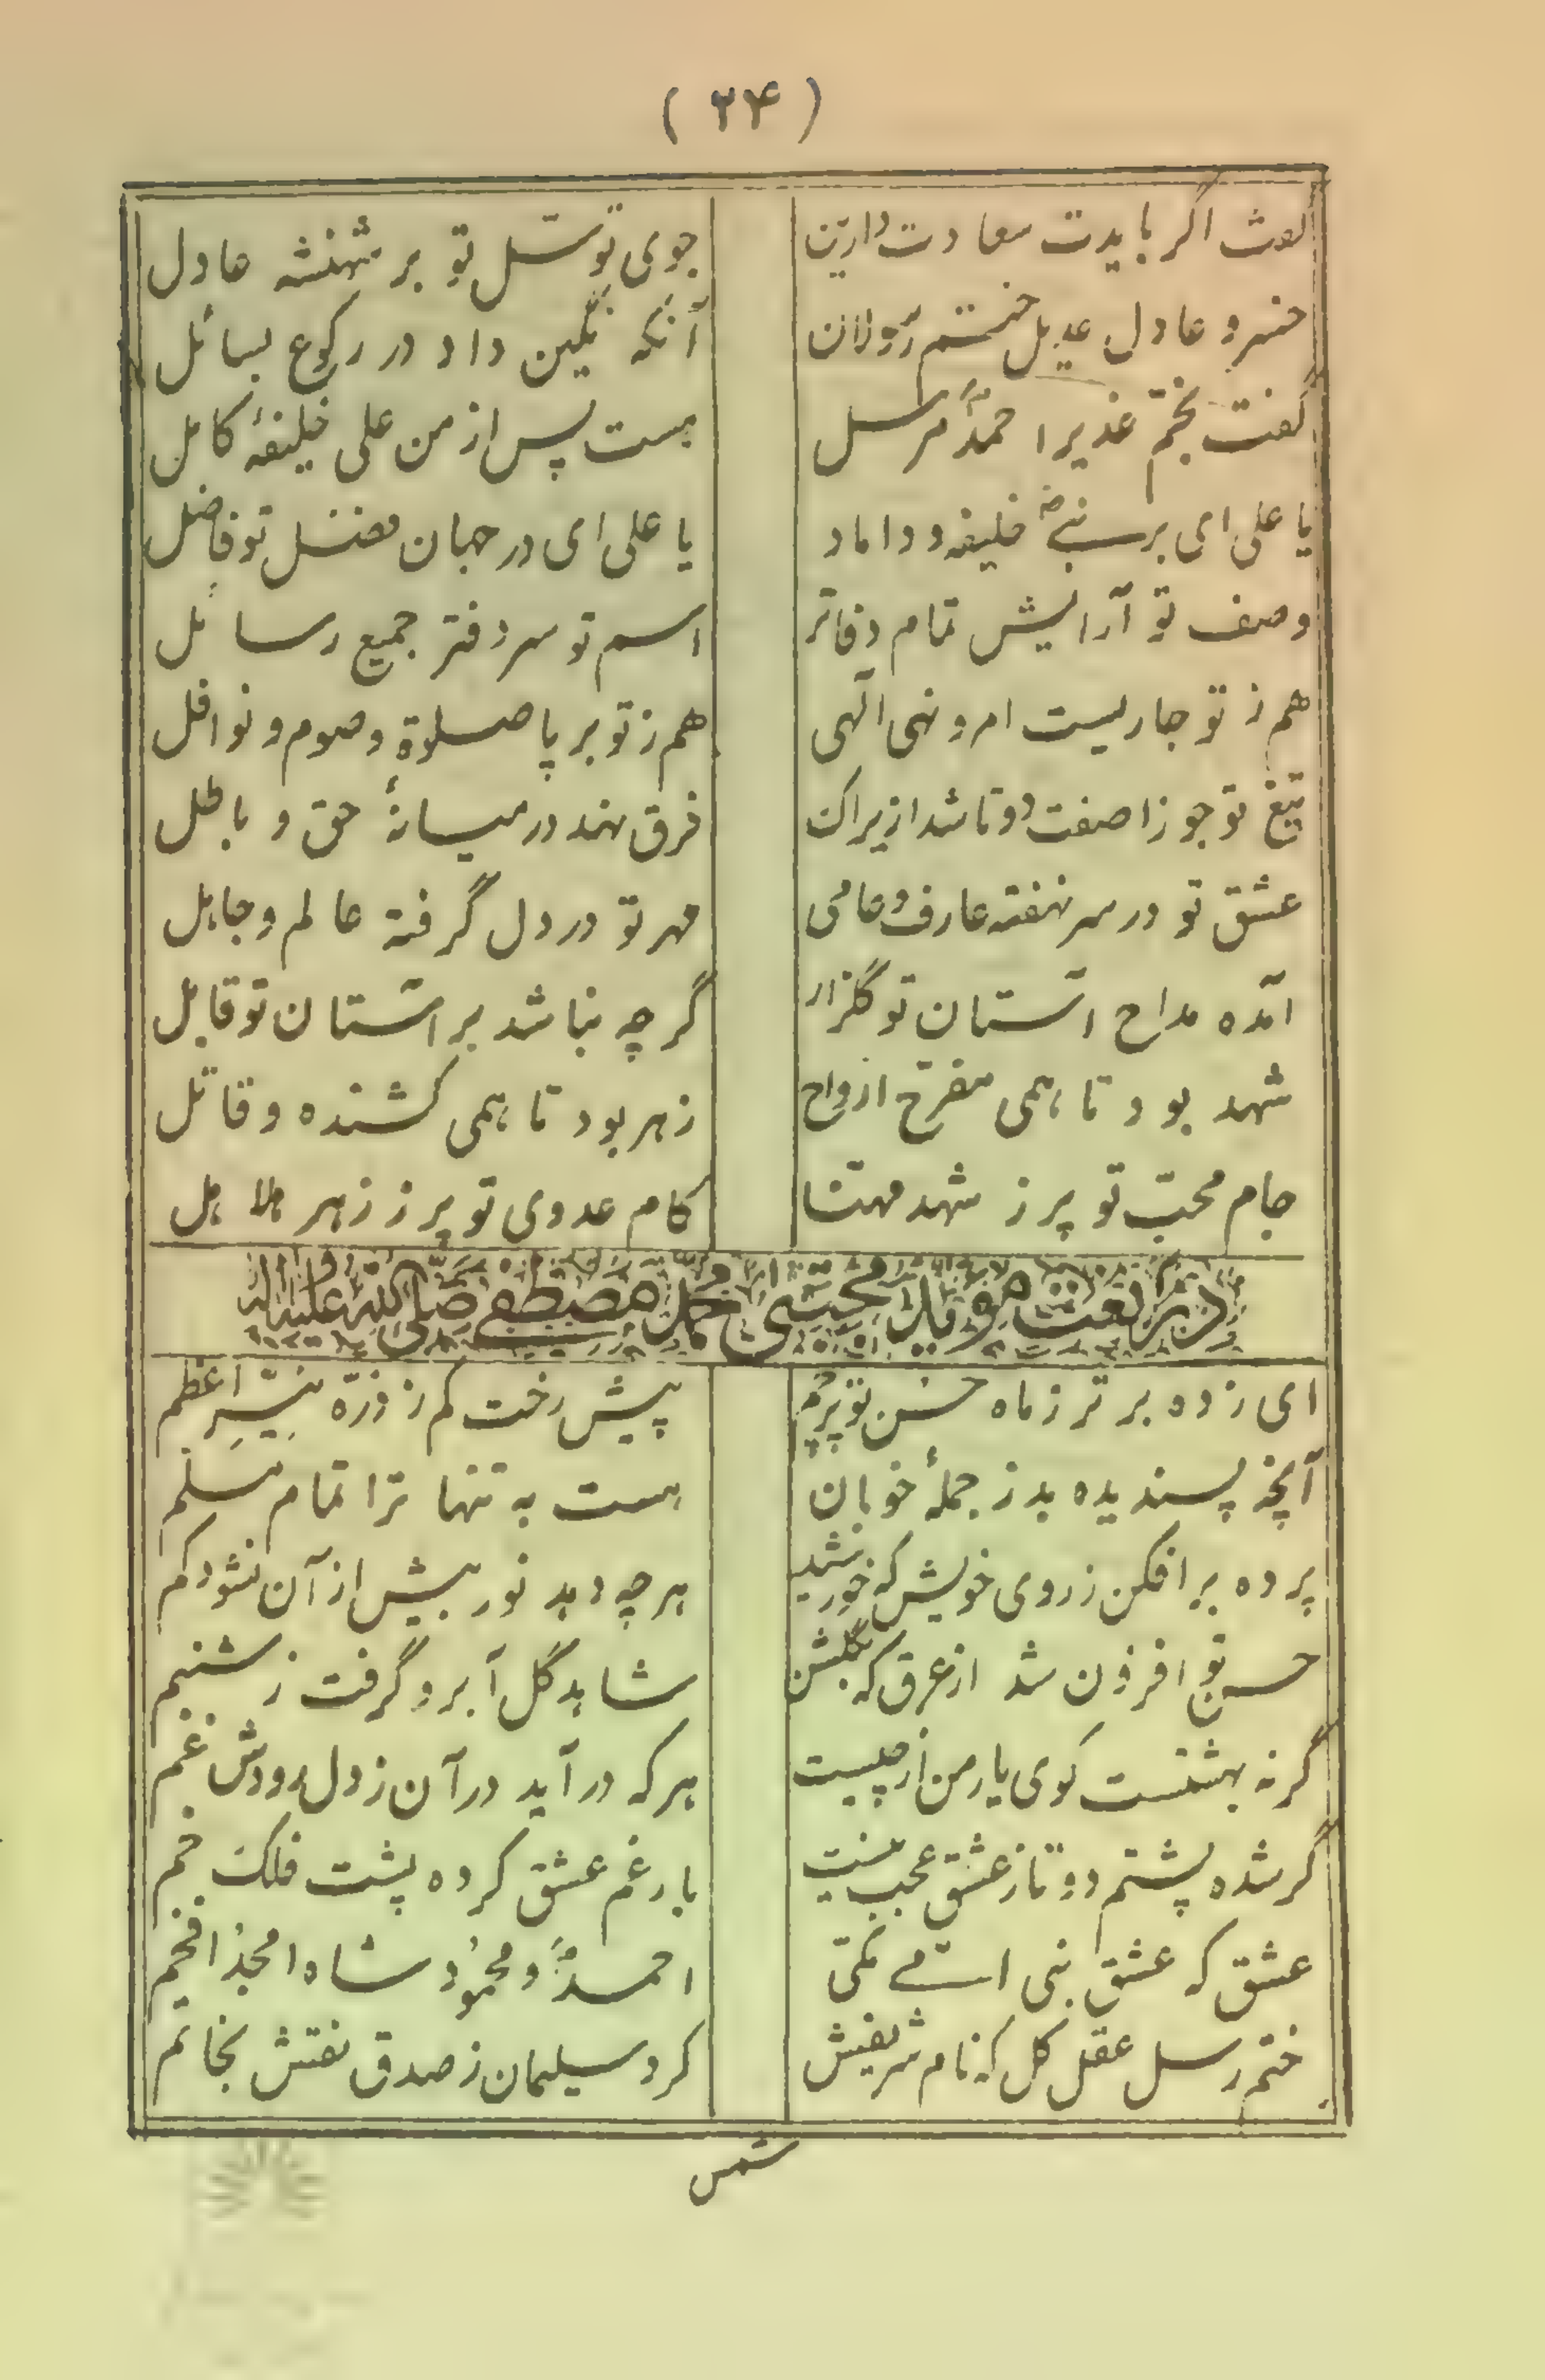 ( ۲۴ )
گفت اگر بایدت سعادت دارین    جوی توسّل تو بر شهنشه عادل
خسرو عادل عدیل ختم رسولان    آنکه نگین داد در رکوع بسائل
گفت بخمّ غدیر احمدّ مرسل    هست پس از من علی خلیفۀ کامل
یا علی ای بر نبی خلیفه و داماد    یا علی ای در جهان مفضل تو فاضل
وصف تو آرایش تمام دفاتر    اسم تو سر دفتر جمیع رسائل
هم ز تو جاریست امر و نهی الهی    هم ز تو بر پا صلوة و صوم و نوافل
تیغ تو جوزا صفت دو تا شد ازیراک    فرق نهد در میانۀ حق و باطل
عشق تو در سر نهفته عارف و عامی    مهر تو در دل گرفته عالم و جاهل
آمده مداح آستان تو گلزار    گرچه نباشد بر آستان تو قابل
شهد بود تا همی مفرّح ارواح    زهر بود تا همی کشنده و قاتل
جام محبّ تو پر ز شهد مهنّا    کام عدوی تو پر ز زهر هلاهل
در نعت مجتبی محمد مصطفی صلی الله علیه و آله
ای زده برتر ز ماه حسن تو پرچم    پیش رخت کم ز ذرّه نیّر اعظم
آنچه پسندیده بد ز جملۀ خوبان    هست به تنها ترا تمام مسلم
پرده برافکن ز روی خویش که خورشید    هر چه دهد نور بیش از آن نشود کم
حسن تو افزون شد از عرق که بگلشن    شاهد گل آبرو گرفت ز شبنم
گر نه بهشتست کوی یار من از چیست    هر که در آید در آن ز دل رودش غم
گر شده پشتم دو تا ز عشق عجب نیست    بار غم عشق کرده پشت فلک خم
عشق که عشق نبی امّی مکّی    احمدّ و محمود شاه امجد افخم
ختم رسل عقل کل که نام شریفش    کرد سلیمان ز صدق نقش بخاتم
شمس